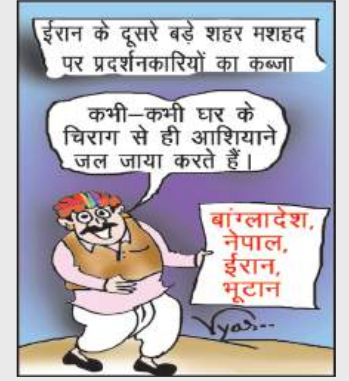 ईरान के दूसरे बड़े शहर मशहद
पर प्रदर्शनकारियों का कब्जा
कभी–कभी घर के
चिराग से ही आशियाने
जल जाया करते हैं।
बांग्लादेश,
नेपाल,
ईरान,
भूटान
Vyas..